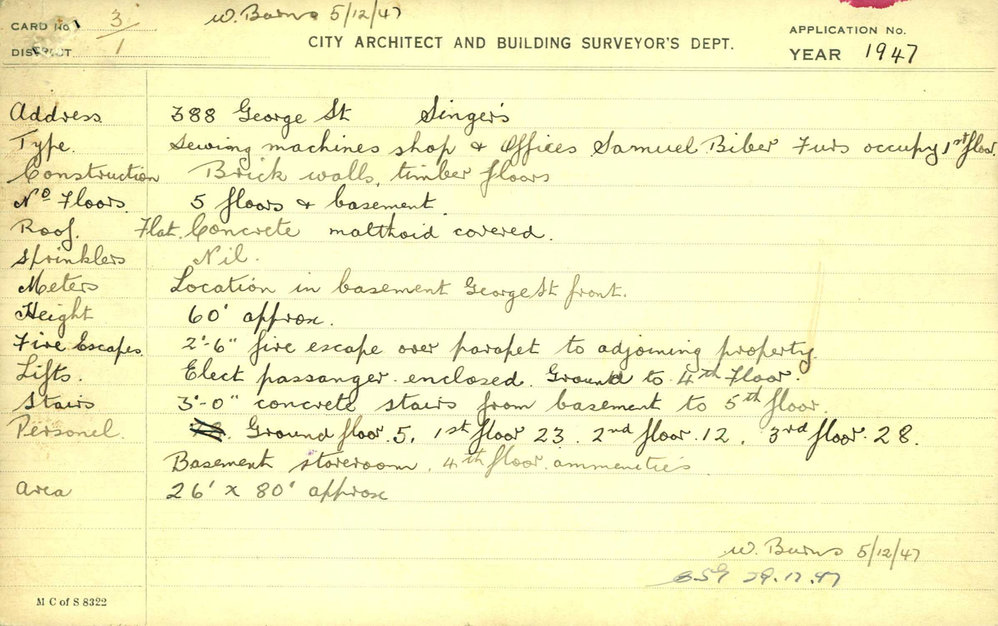 CARD No. 3/1 W. Burns 5/12/47 APPLICATION No.
DISTRICT CITY ARCHITECT AND BUILDING SURVEYOR'S DEPT. YEAR 1947
Address 388 George St Singer's
Type. Sewing machines shop & Offices Samuel Biber Furs occupy 1st floor.
Construction Brick walls, timber floors
No Floors. 5 floors & basement
Roof. Flat. Concrete malthoid covered.
Sprinklers Nil.
Meters Location in basement George St front.
Height 60' approx.
Fire Escapes. 2'-6" fire escape over parapet to adjoining property.
Lifts. Elect passanger enclosed. Ground to 4th Floor.
Stairs 3'-0" concrete stairs from basement to 5th floor.
Personel. Ground floor. 5, 1st floor 23. 2nd floor. 12, 3rd floor. 28.
Basement storeroom, 4th floor ammeneties
Area 26' x 80' approx
W. Burns 5/12/47
29.12.47
M C of S 8322